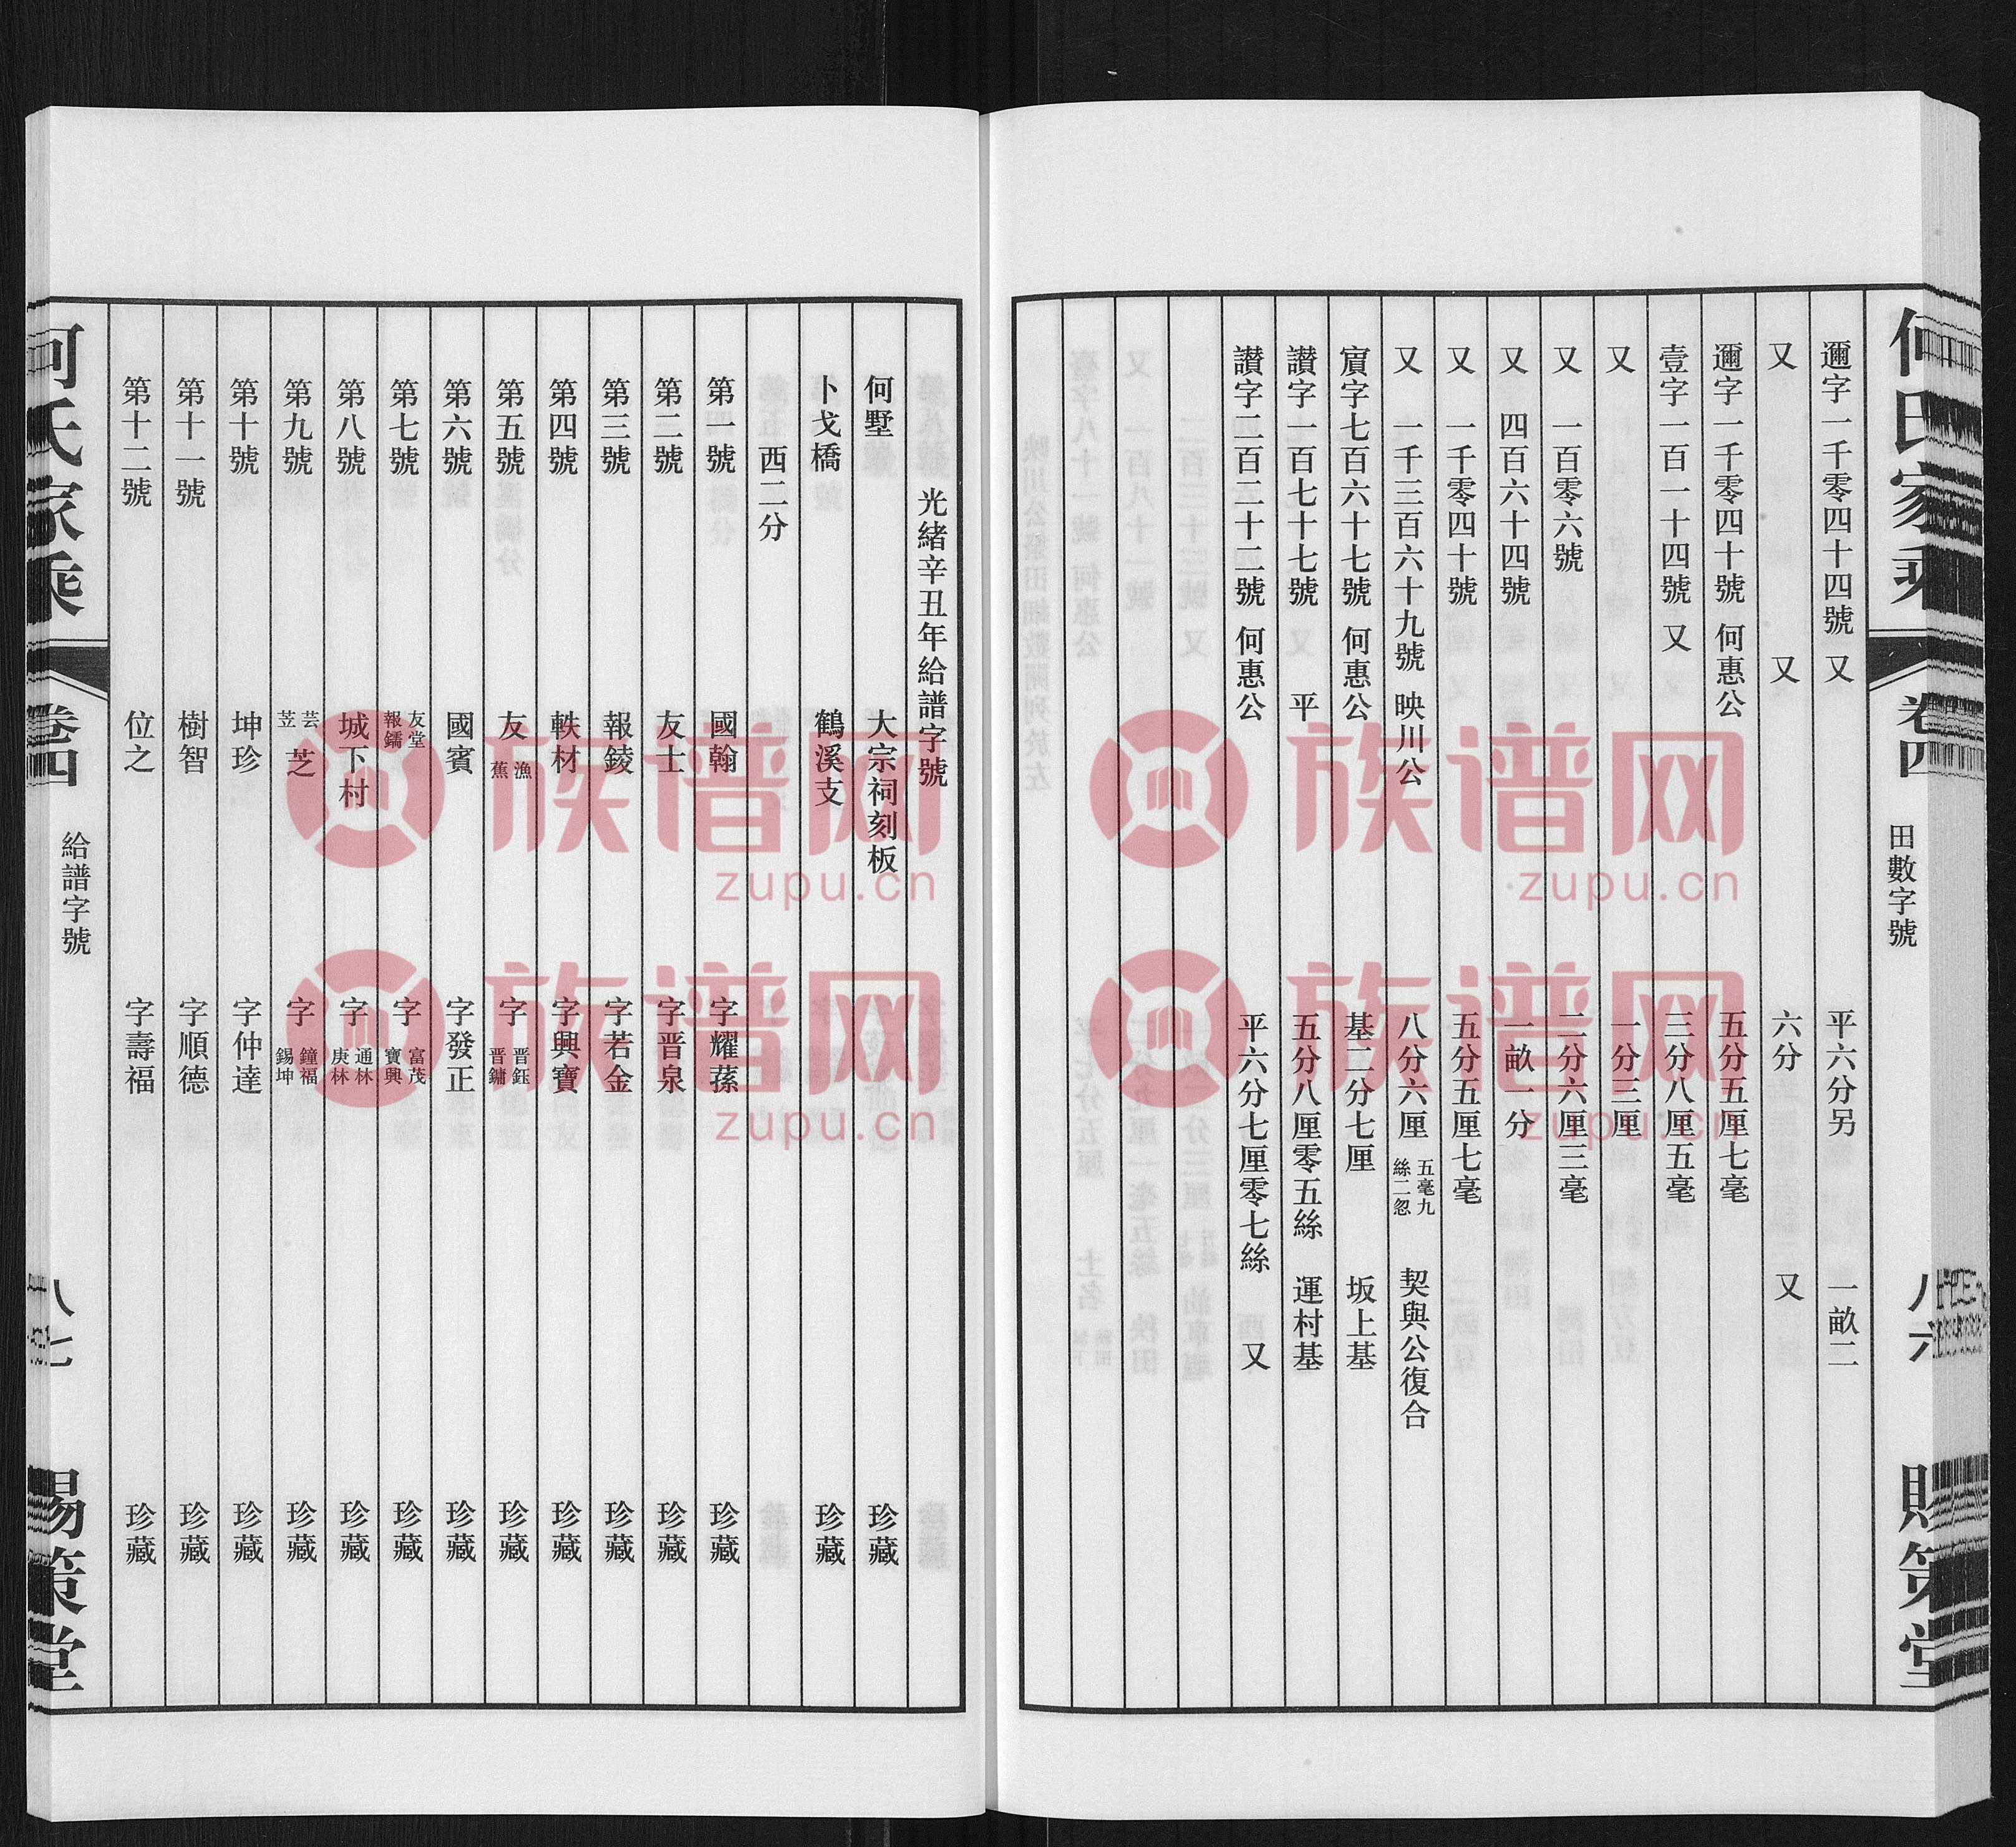 何氏家乘 卷四 田數字號 八六 賜策堂
邇字一千零四十四號 又 平六分另 一畝二
又 又 六分 又
邇字一千零四十號 何惠公 五分五厘七毫
壹字一百一十四號 又 三分八厘五毫
又 一分三厘
又 一百零六號 二分六厘三毫
又 四百六十四號 一畝一分
又 一千零四十號 五分五厘七毫
又 一千三百六十九號 映川公 八分六厘 五毫九絲二忽 契與公復合
寊字七百六十七號 何惠公 基二分七厘 坂上基
讃字一百七十七號 平 五分八厘零五絲 運村基
讃字二百二十二號 何惠公 平六分七厘零七絲 又
光緒辛丑年給譜字號
何墅 大宗祠刻板 珍藏
卜戈橋 鶴溪支 珍藏
西二分
第一號 國翰 字耀蓀 珍藏
第二號 友士 字晋泉 珍藏
第三號 報錂 字若金 珍藏
第四號 軼材 字興寶 珍藏
第五號 友 漁蕉 字 晋鈺 晋鏞 珍藏
第六號 國賓 字發正 珍藏
第七號 友堂 報鑐 字 富茂 寶興 珍藏
第八號 城下村 字 通林 庚林 珍藏
第九號 芸芝 字 鐘福 錫坤 珍藏
第十號 坤珍 字仲達 珍藏
第十一號 樹智 字順德 珍藏
第十二號 位之 字壽福 珍藏
何氏家乘 卷四 給譜字號 八七 賜策堂
族谱网
zupu.cn
族谱网
zupu.cn
族谱网
zupu.cn
族谱网
zupu.cn